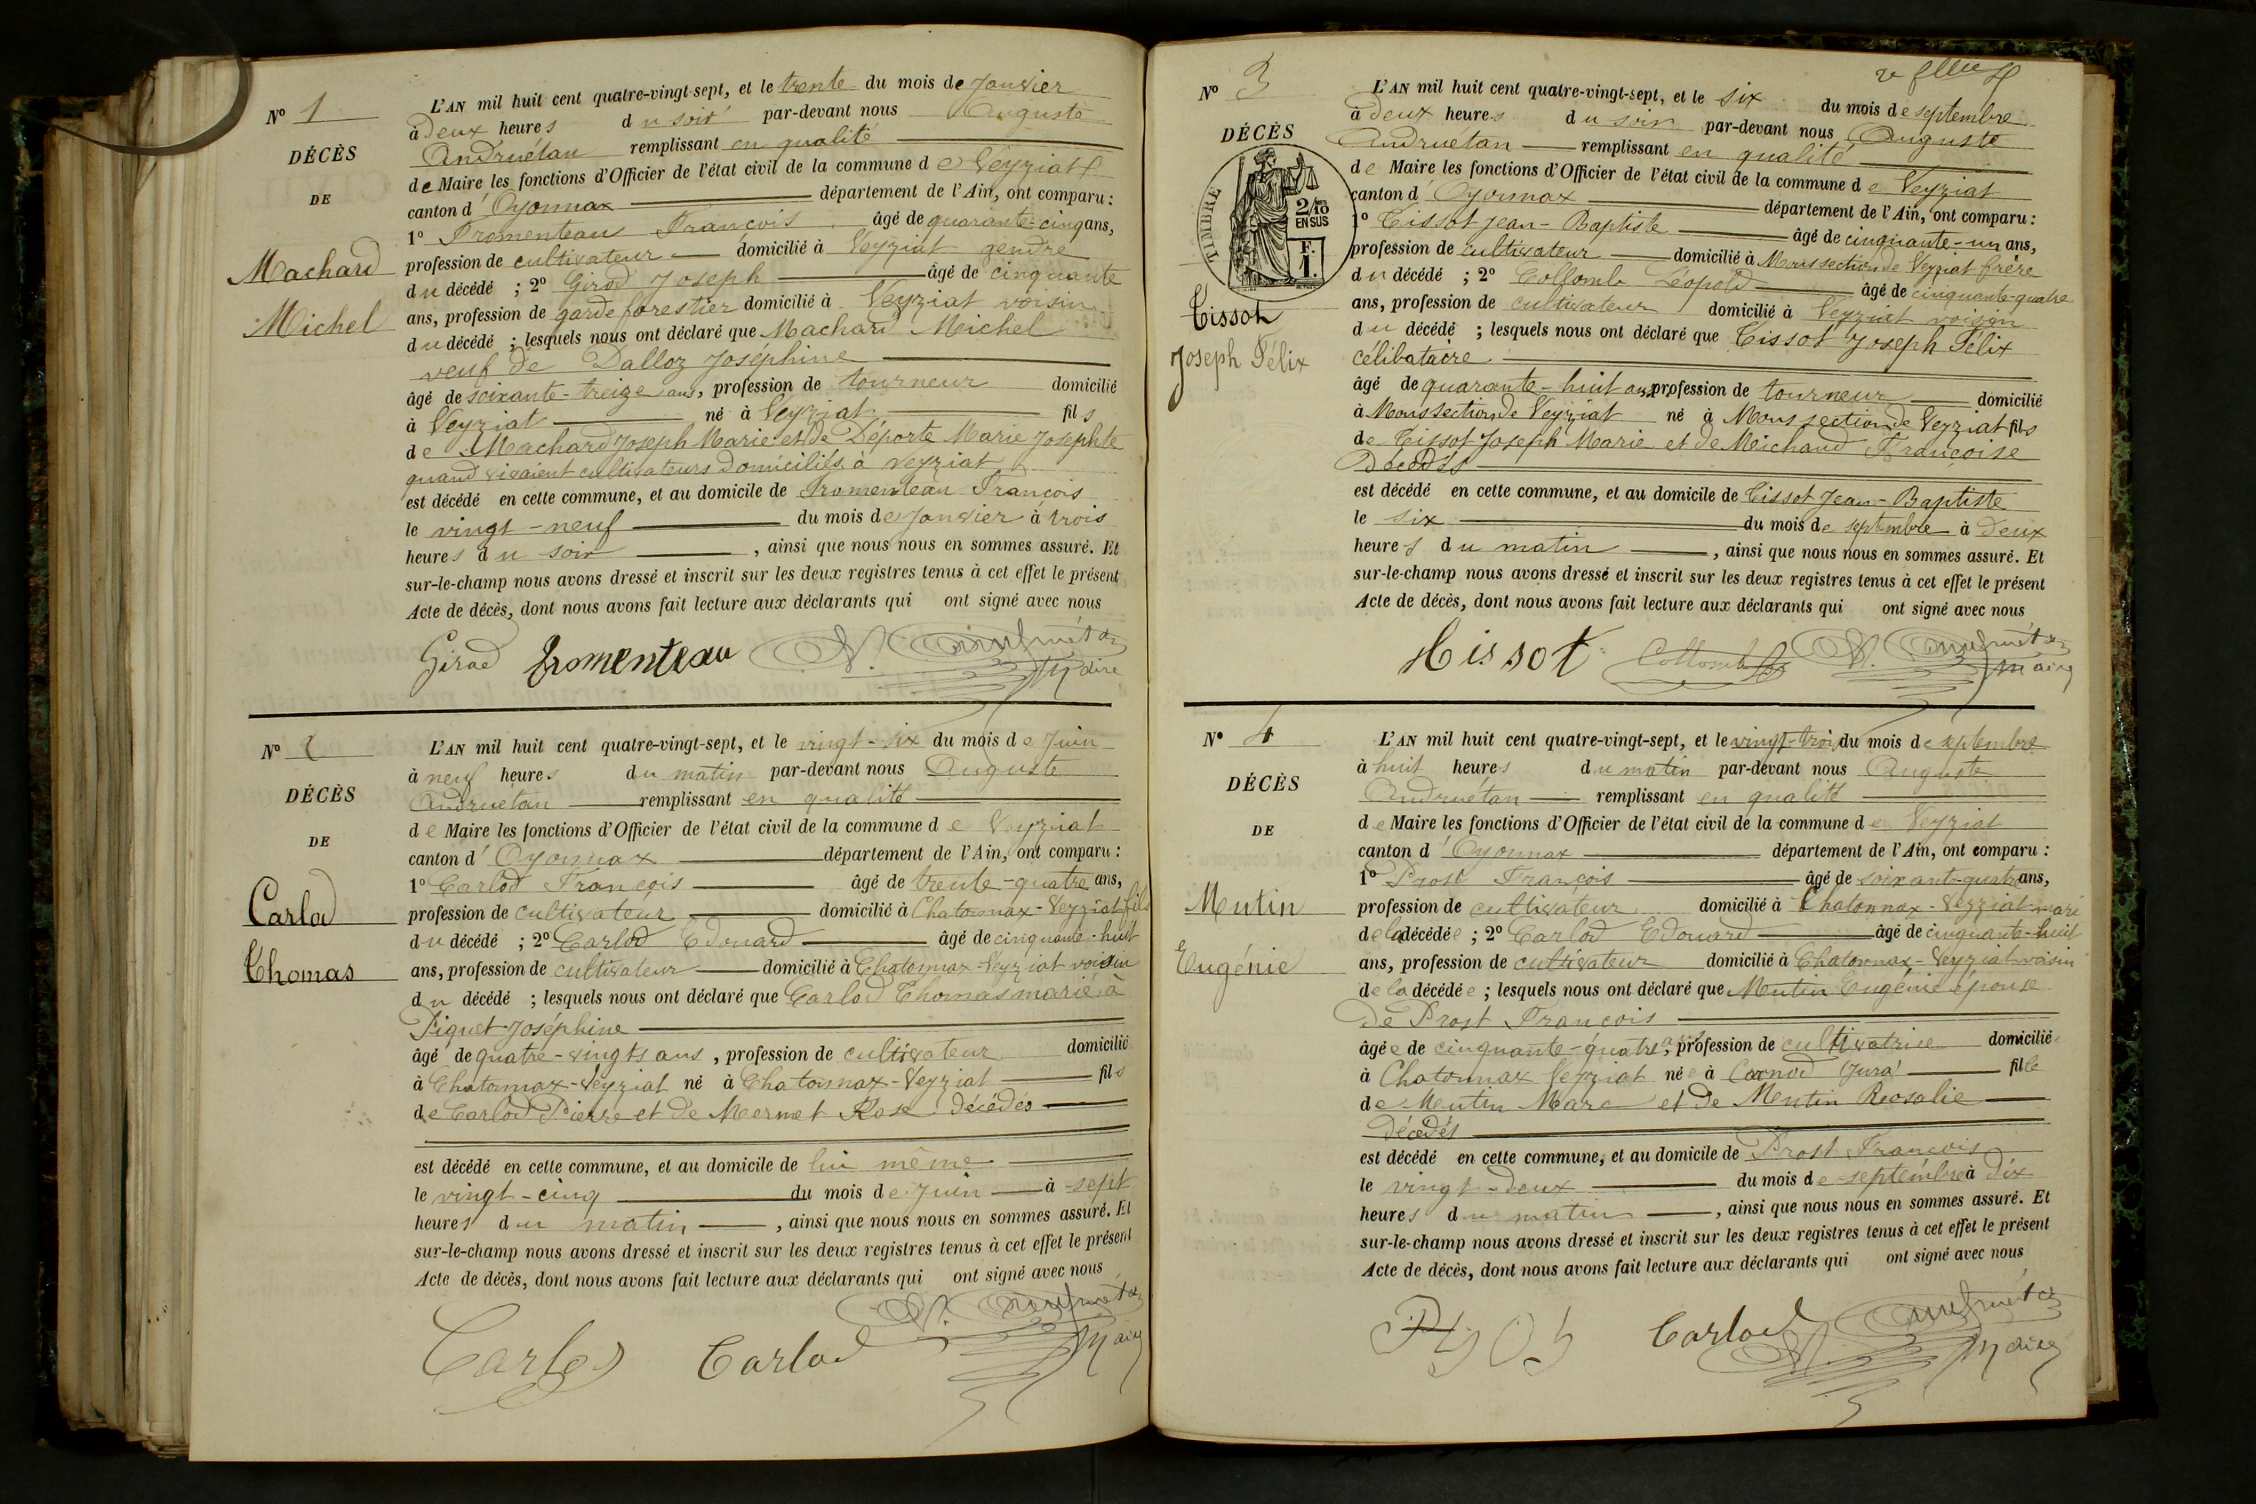 Nº 1
DÉCÈS
DE
Machard
Michel
L'AN mil huit cent quatre-vingt-sept, et le trente du mois de Janvier
à deux heures du soir par-devant nous Auguste
Andruétan remplissant en qualité
de Maire les fonctions d'Officier de l'état civil de la commune de Veyziat
canton d'Oyonnax département de l'Ain, ont comparu :
1º Promenteau François âgé de quarante-cinq ans,
profession de cultivateur domicilié à Veyziat gendre
du décédé ; 2º Girod Joseph âgé de cinquante
ans, profession de garde forestier domicilié à Veyziat voisin
du décédé ; lesquels nous ont déclaré que Machard Michel
veuf de Dalloz Joséphine
âgé de soixante-treize ans, profession de tourneur domicilié
à Veyziat né à Veyziat fils
de Machard Joseph Marie et de Déporte Marie Josephte
quand vivaient cultivateurs domiciliés à Veyziat
est décédé en cette commune, et au domicile de Promenteau François
le vingt-neuf du mois de Janvier à trois
heures du soir , ainsi que nous nous en sommes assuré. Et
sur-le-champ nous avons dressé et inscrit sur les deux registres tenus à cet effet le présent
Acte de décès, dont nous avons fait lecture aux déclarants qui ont signé avec nous
Girod Promenteau A. Andruétan
Maire
Nº 2
DÉCÈS
DE
Carlod
Thomas
L'AN mil huit cent quatre-vingt-sept, et le vingt-six du mois de Juin
à neuf heures du matin par-devant nous Auguste
Andruétan remplissant en qualité
de Maire les fonctions d'Officier de l'état civil de la commune de Veyziat
canton d'Oyonnax département de l'Ain, ont comparu :
1º Carlod François âgé de trente-quatre ans,
profession de cultivateur domicilié à Chatonnax-Veyziat fils
du décédé ; 2º Carlod Edouard âgé de cinquante-huit
ans, profession de cultivateur domicilié à Chatonnax-Veyziat voisin
du décédé ; lesquels nous ont déclaré que Carlod Thomas marié à
Piquet Joséphine
âgé de quatre-vingts ans, profession de cultivateur domicilié
à Chatonnax-Veyziat né à Chatonnax-Veyziat fils
de Carlod Pierre et de Mermet Rose décédés
est décédé en cette commune, et au domicile de lui même
le vingt-cinq du mois de Juin à sept
heures du matin , ainsi que nous nous en sommes assuré. Et
sur-le-champ nous avons dressé et inscrit sur les deux registres tenus à cet effet le présent
Acte de décès, dont nous avons fait lecture aux déclarants qui ont signé avec nous
Carlod Carlod A. Andruétan
Maire
Nº 3
DÉCÈS
TIMBRE
2/10
EN SUS
F.
1.
Tissot
Joseph Félix
L'AN mil huit cent quatre-vingt-sept, et le six du mois de septembre
à deux heures du soir par-devant nous Auguste
Andruétan remplissant en qualité
de Maire les fonctions d'Officier de l'état civil de la commune de Veyziat
canton d'Oyonnax département de l'Ain, ont comparu :
1º Tissot Jean-Baptiste âgé de cinquante-un ans,
profession de cultivateur domicilié à Mons section de Veyziat frère
du décédé ; 2º Collomb Léopold âgé de cinquante-quatre
ans, profession de cultivateur domicilié à Veyziat voisin
du décédé ; lesquels nous ont déclaré que Tissot Joseph Félix
célibataire
âgé de quarante-huit ans, profession de tourneur domicilié
à Mons section de Veyziat né à Mons section de Veyziat fils
de Tissot Joseph Marie et de Michaud Françoise
Décédés
est décédé en cette commune, et au domicile de Tissot Jean-Baptiste
le six du mois de septembre à deux
heures du matin , ainsi que nous nous en sommes assuré. Et
sur-le-champ nous avons dressé et inscrit sur les deux registres tenus à cet effet le présent
Acte de décès, dont nous avons fait lecture aux déclarants qui ont signé avec nous
Tissot Collomb A. Andruétan
Maire
Nº 4
DÉCÈS
DE
Mutin
Eugénie
L'AN mil huit cent quatre-vingt-sept, et le vingt-trois du mois de septembre
à huit heures du matin par-devant nous Auguste
Andruétan remplissant en qualité
de Maire les fonctions d'Officier de l'état civil de la commune de Veyziat
canton d'Oyonnax département de l'Ain, ont comparu :
1º Prost François âgé de soixante-quatre ans,
profession de cultivateur domicilié à Chatonnax-Veyziat mari
de la décédée ; 2º Carlod Edouard âgé de cinquante-huit
ans, profession de cultivateur domicilié à Chatonnax-Veyziat voisin
de la décédée ; lesquels nous ont déclaré que Mutin Eugénie épouse
de Prost François
âgée de cinquante-quatre ans, profession de cultivatrice domiciliée
à Chatonnax Veyziat née à Cornod Jura fille
de Mutin Marc et de Mutin Rosalie
décédés
est décédé en cette commune, et au domicile de Prost François
le vingt-deux du mois de septembre à dix
heures du matin , ainsi que nous nous en sommes assuré. Et
sur-le-champ nous avons dressé et inscrit sur les deux registres tenus à cet effet le présent
Acte de décès, dont nous avons fait lecture aux déclarants qui ont signé avec nous
Prost Carlod A. Andruétan
Maire